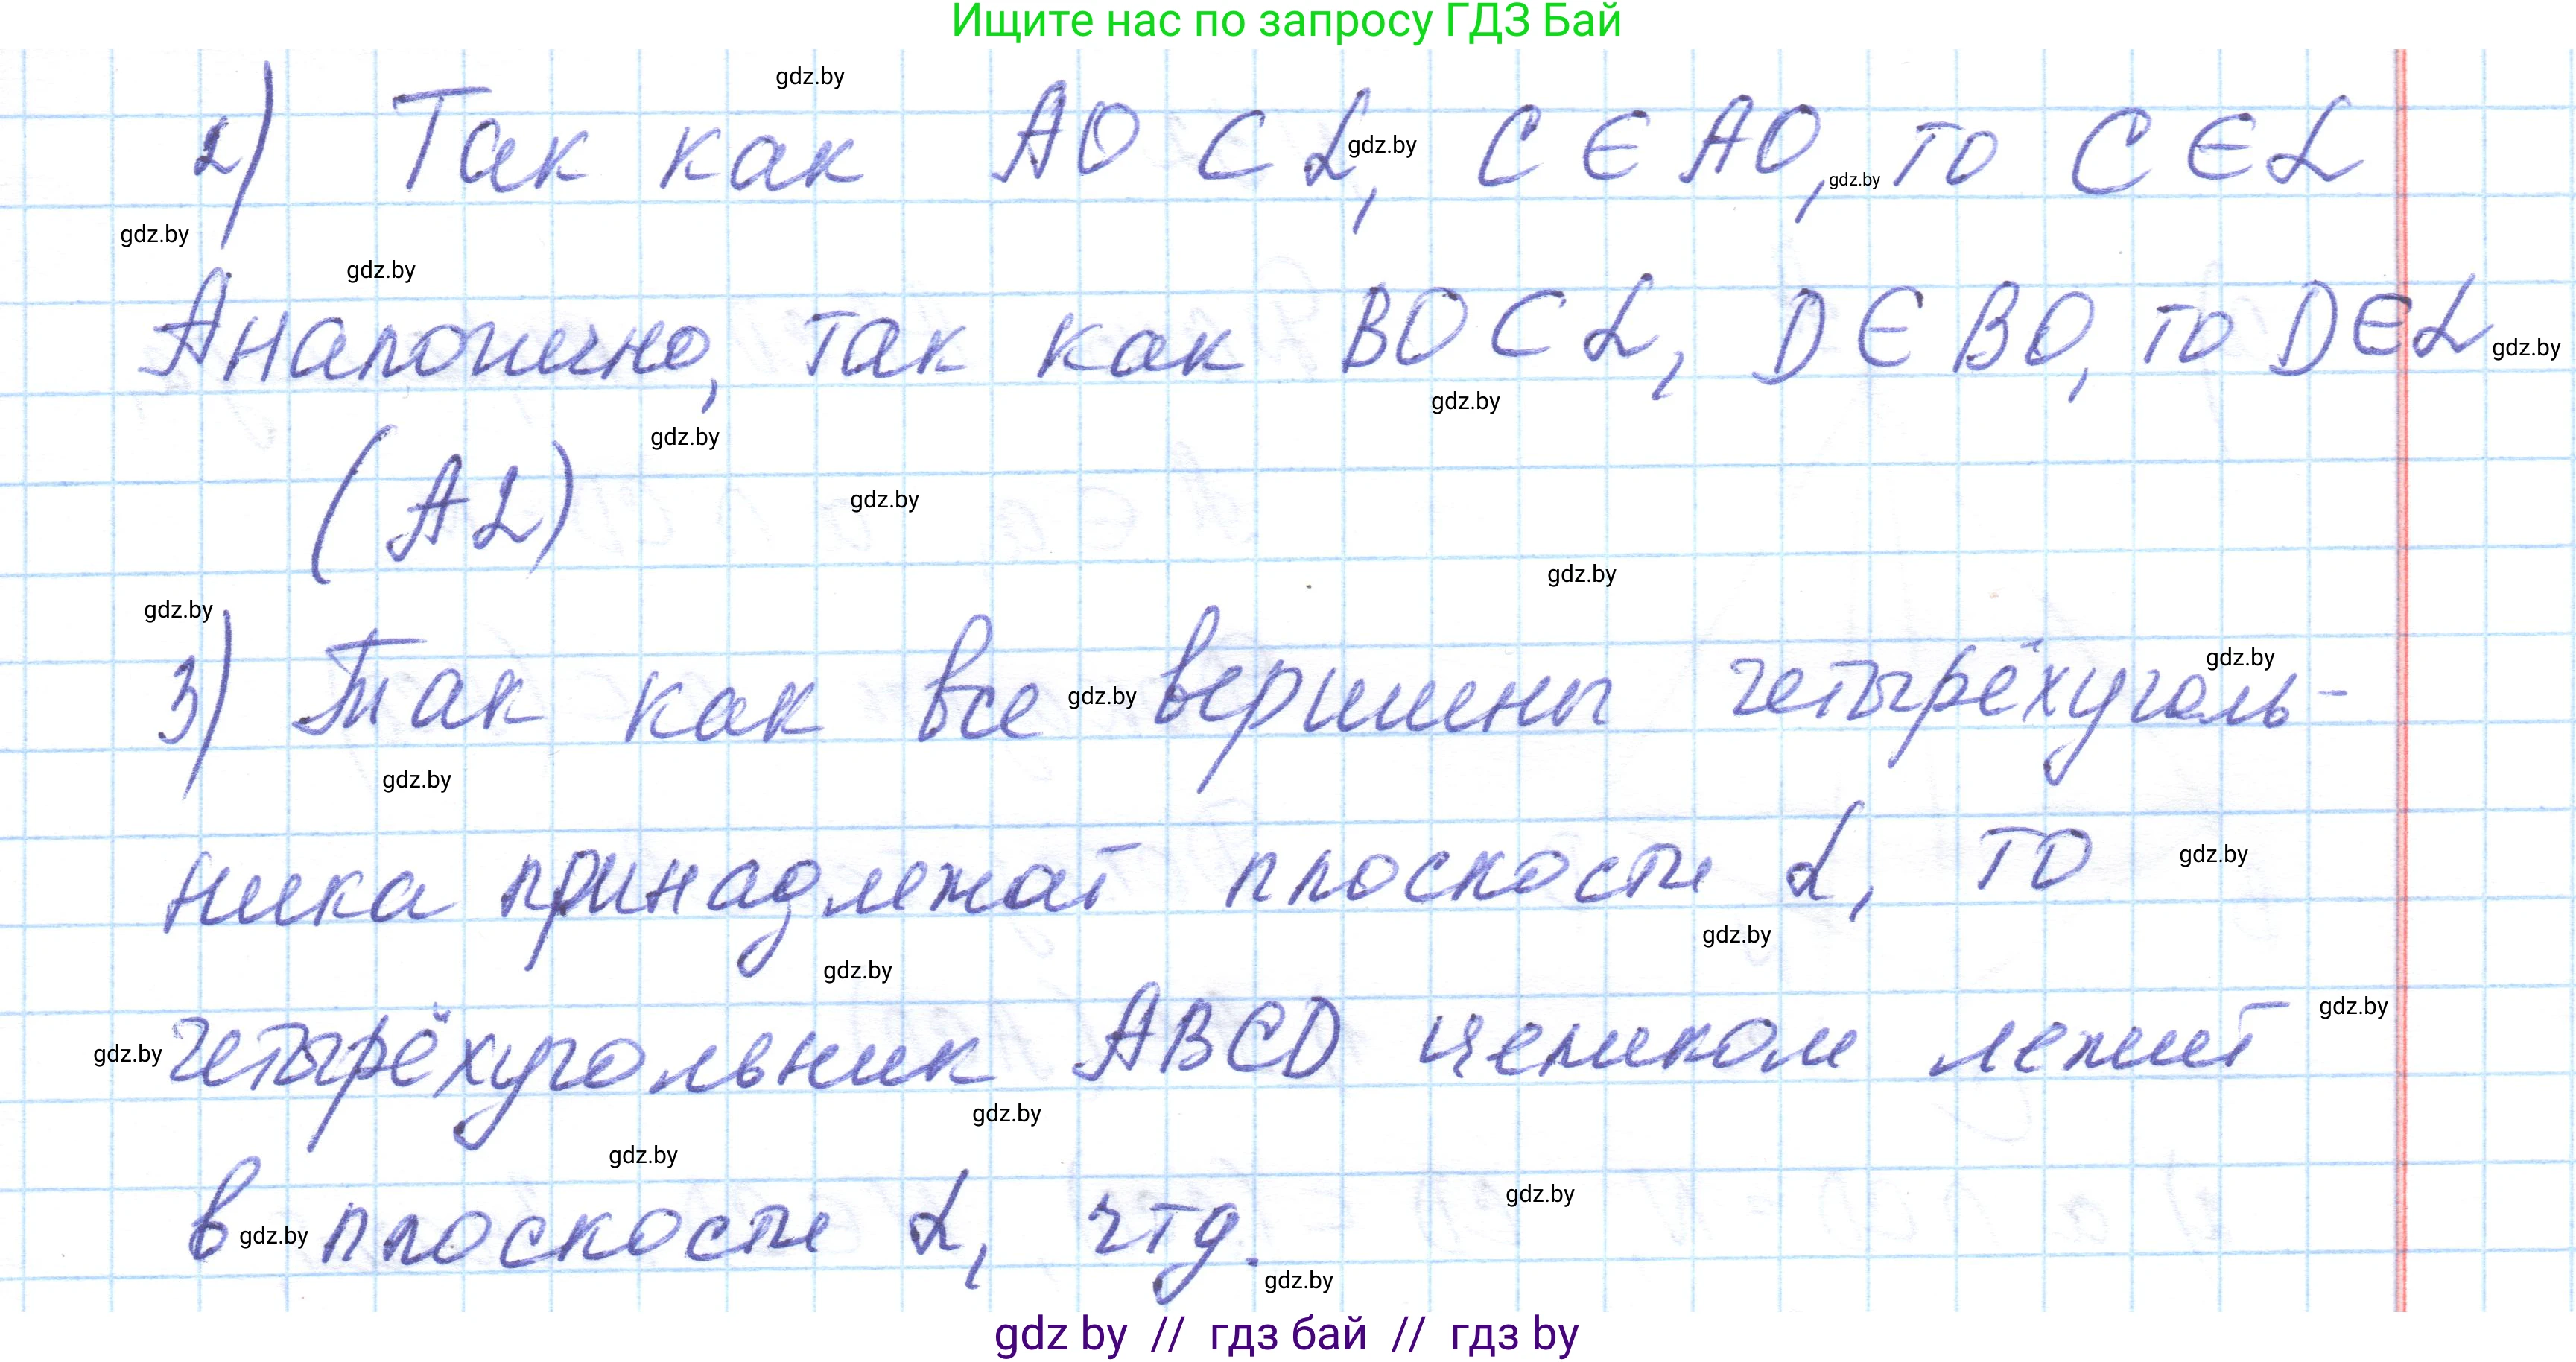 Ищите нас по запросу ГДЗ Бай
gdz.by
2) Так как AO ⊂ α, C ∈ AO, то C ∈ α
gdz.by gdz.by
gdz.by gdz.by
Аналогично, так как BO ⊂ α, D ∈ BO, то D ∈ α
gdz.by
gdz.by gdz.by
(A2)
gdz.by
gdz.by gdz.by
3) Так как все вершины четырёхуголь-
gdz.by gdz.by
gdz.by
ника принадлежат плоскости α, то
gdz.by
gdz.by gdz.by
четырёхугольник ABCD целиком лежит
gdz.by gdz.by
gdz.by gdz.by
в плоскости α, чтд.
gdz.by gdz.by
gdz.by
gdz by // гдз бай // гдз by